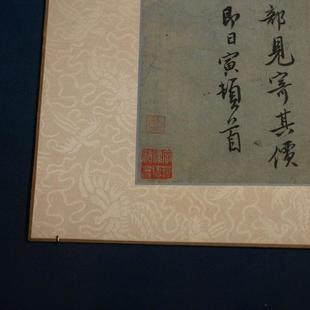 部見寄其價
即日寅頓首